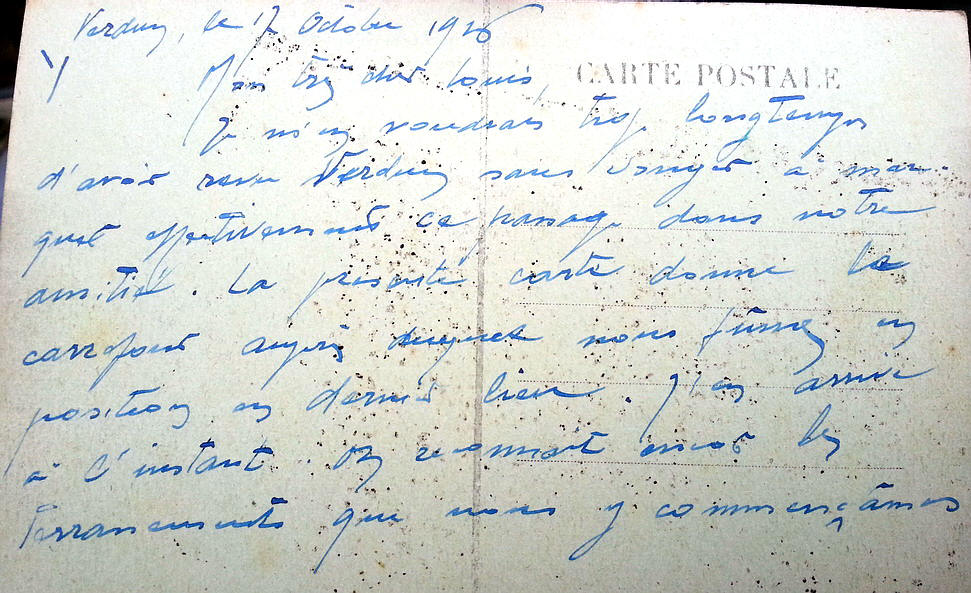 Verdun, le 17 Octobre 1926
Mon très cher Louis,
CARTE POSTALE
Je m'en voudrais trop longtemps
d'avoir revu Verdun sans songer à mar-
quer effectivement ce passage dans notre
amitié. La présente carte donne le
carrefour auprès duquel nous fûmes en
position en dernier lieu. J'en arrive
à l'instant. On reconnait encor les
terrassements que nous y commençâmes